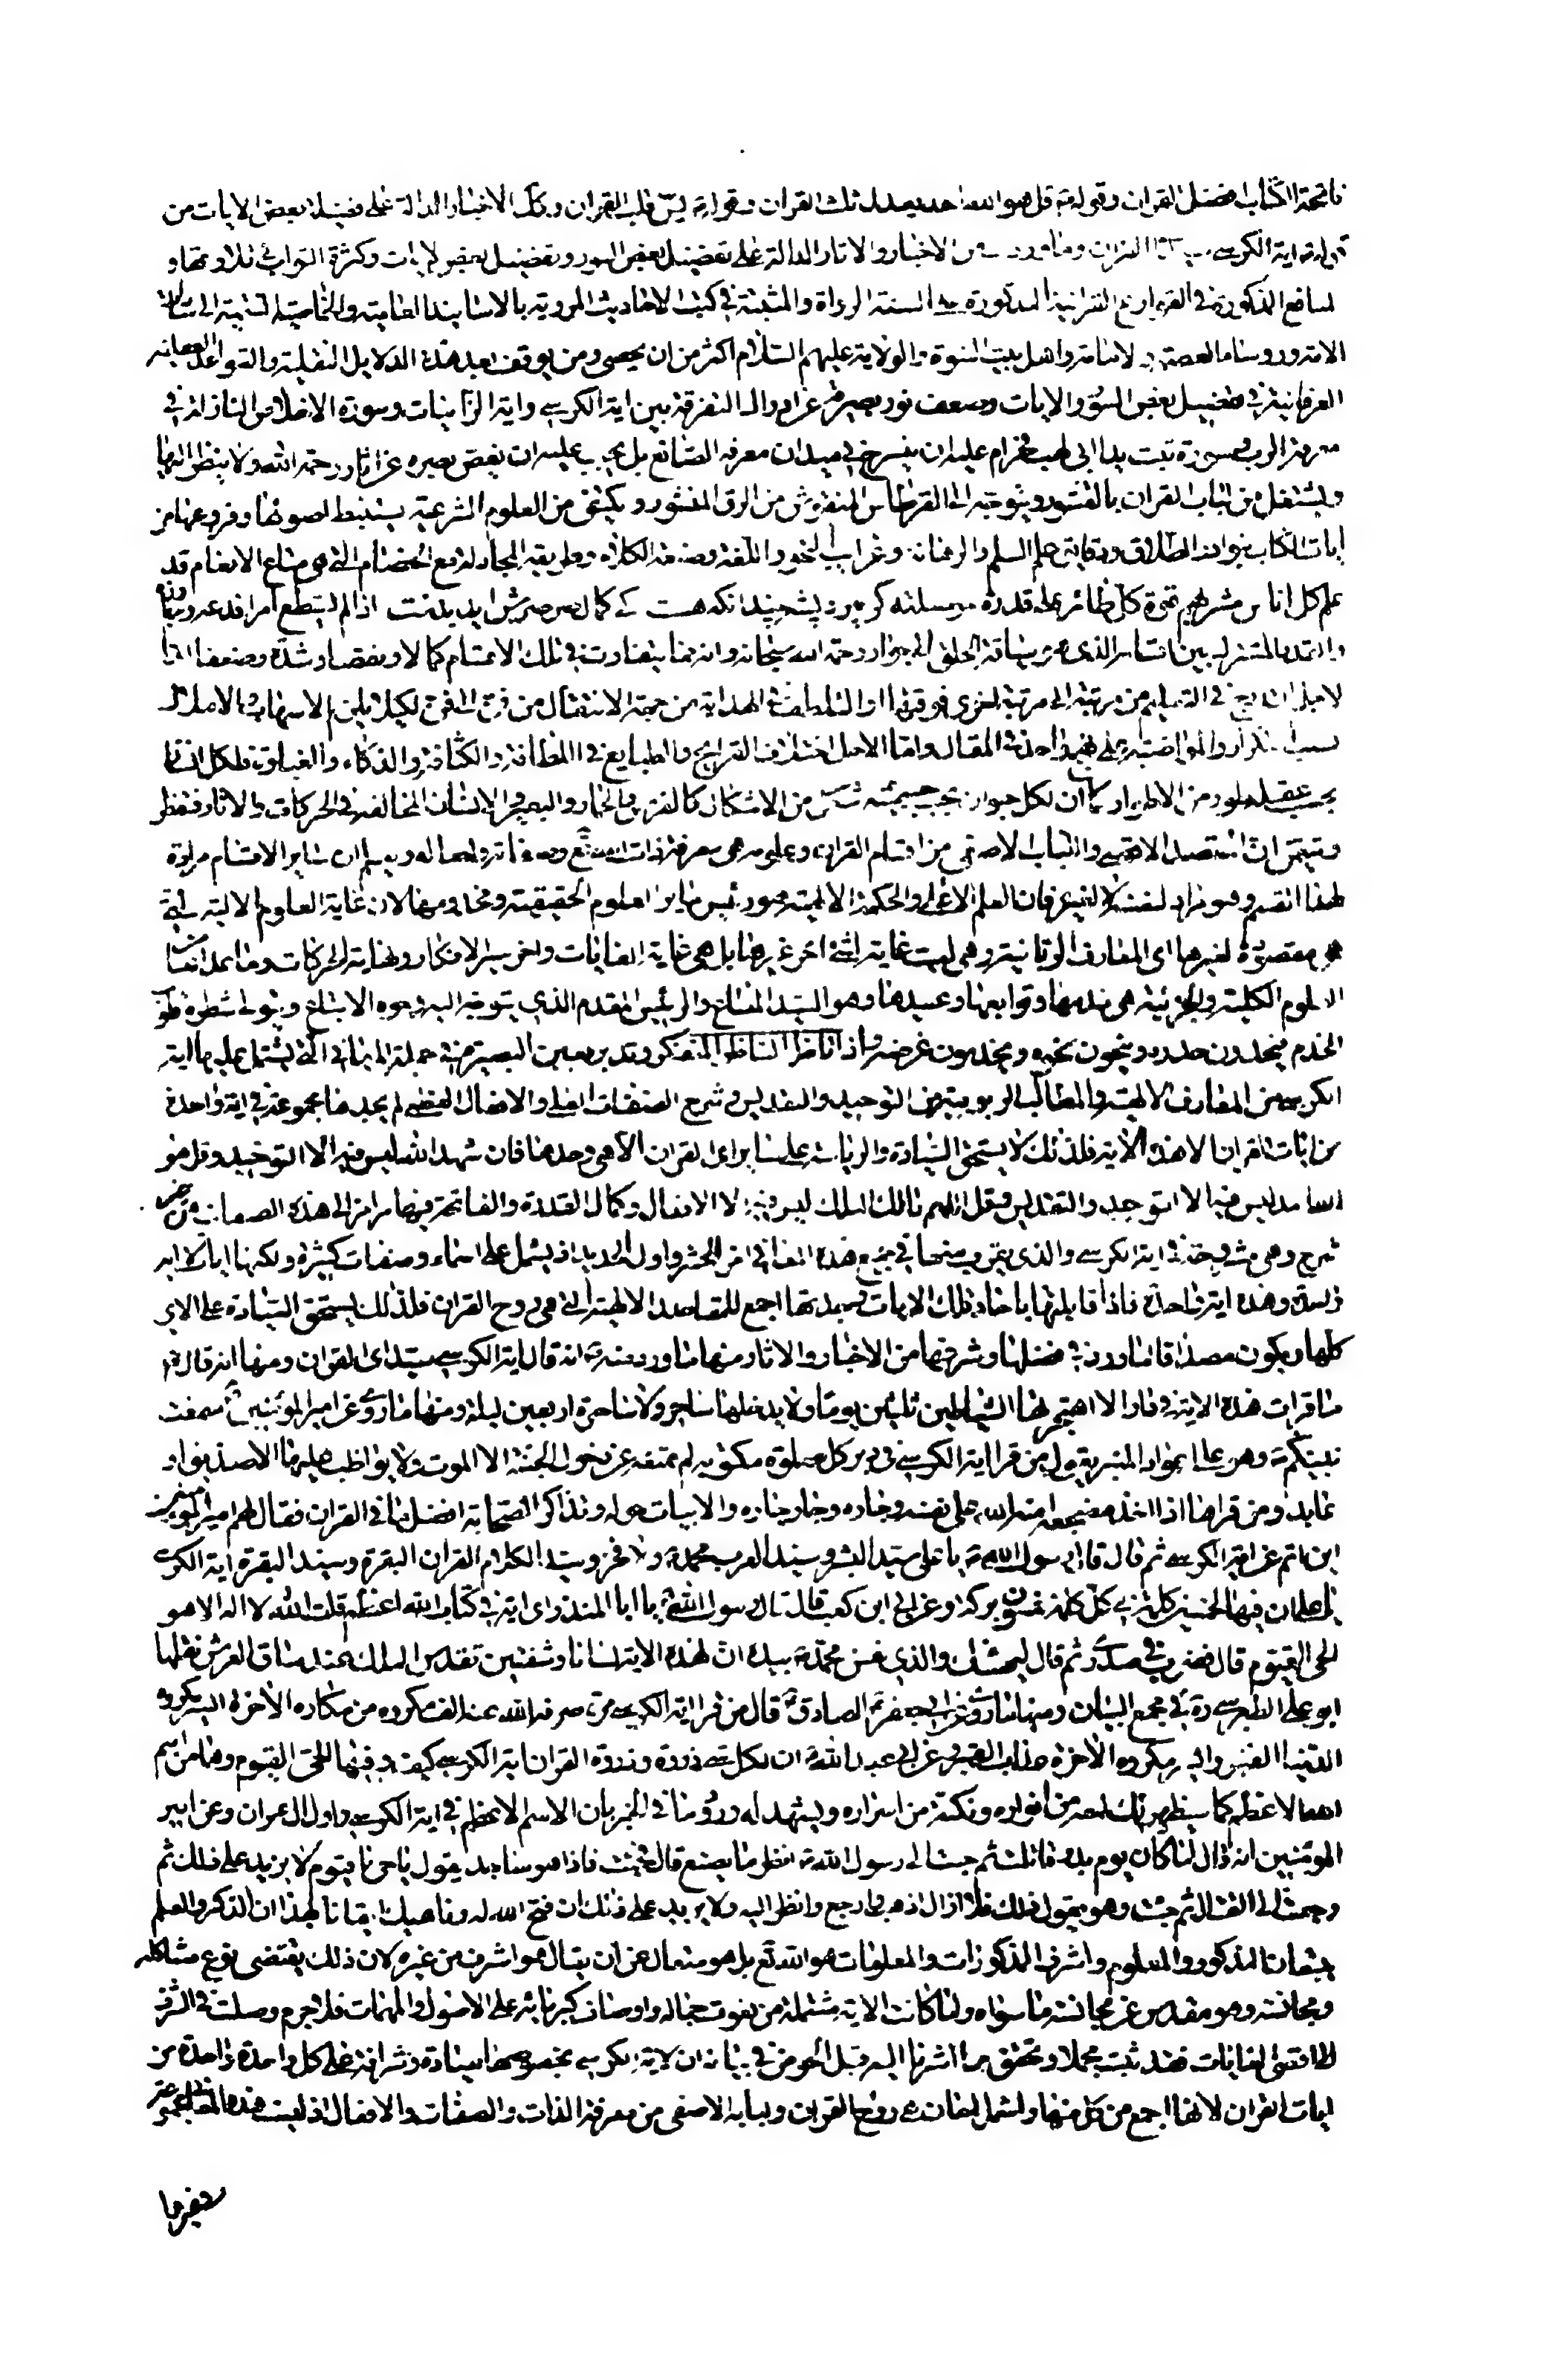 فاتحة الكتاب افضل القران وقوله ص قل هو الله احد يعدل ثلث القران وقوله ص يس قلب القران وكذلك الاخبار الدالة على فضيلة بعض الايات من
قوله ص اية الكرسي سيدة اى القران وما ورد من الاخبار والاثار الدالة على تفضيل بعض السور وتفضيل بعض الايات وكثرة الثواب في تلاوتها و
المنافع المذكورة في القوارع القرانية المذكورة على السنة الرواة والمثبتة في كتب الاحاديث المروية بالاسانيد العامية والخاصية المنتهية الى
الائمة وروساء العصمة والامامة واهل بيت النبوة والولاية عليهم السلام اكثر من ان يحصى ومن يوقف بعد هذه الدلايل النقلية والقواعد
العرفانية في تفضيل بعض السور والايات وضعف نور بصيرته عن ادراك التفرقة بين اية الكرسي واية المداينات وسورة الاخلاص النازلة في
معرفة الرب وسورة تبت يدا ابي لهب فحرام عليه ان يسرح في ميدان معرفة الصانع بل يجب عليه ان يغض بصيره عن اثار رحمة الله ولا ينظر اليها
وليشتغل من لباب القران بالقشور ويتوجه الى القرطاس المنقوش من الرق المنشور ويكتفى من العلوم الشرعية يستنبط اصولها وفروعها من
ايات الكتاب بنوادر الطلاق ودقايق علم السلم والرهانة وغرايب النحو واللغة وصنعة الكلام وطريقة المجادلة مع الخصام التي هي متاع الانعام قد
علم كل اناس مشربهم قوة كل طائر على قدره اذا لم تستطع امرا فدعه
لاجل التدريج في التعليم من مرتبة الى مرتبة اخرى فوقها او التلطف في الهداية من جهة الانتقال من فن الى فن لكيلا يلزم الاسهاب والاملال
بسبب التكرار والمواظبة على نهج واحد في المقال واما لاجل اختلاف القرايح والطبايع في اللطافة والكثافة والذكاء والغباوة فلكل انسان
بحسب عقله طور من الاطوار كما ان لكل حيوان بحسب جسميته شكل من الاشكال كالفرس والحمار والبعير والانسان المخالفة في الحركات والاثار فتفطن
وتيقن ان المقصد الاقصى واللباب الاصفى من اقسام القران وعلومه هي معرفة ذات الله تع وصفاته وافعاله ويعلم ان ساير الاقسام مرادة
لهذا القسم وهو مراد لنفسه لا لغيره فان العلم الاعلى والحكمة الالهية هو رئيس ساير العلوم الحقيقية ومخدومها لان غاية العلوم الالية
مقصودة لغيرها اى المعارف الربانية وهي ليست غاية لشئ اخر غيرها بل هي غاية الغايات واخر سير الافكار ونهاية الحركات وما عداها من
العلوم الكلية والجزئية هي خدمها وتوابعها وعبيدها وهو السيد المطاع والرئيس المقدم الذي يتوجه اليه وجوه الاتباع ويتولى شطره
الخدم فيحذون حذوه وينحون نحوه ويخدمون غرضه واذا نظر الناظر المتفكر وتدبر بعين البصيرة في جملة المعاني التي يشتمل عليها اية
الكرسي من المعارف الالهية والمطالب الربوبية من التوحيد والتقديس وشرح الصفات العلى والافعال العظمى لم يجدها مجموعة في اية واحدة
من ايات القران الا هذه الاية فلذلك لا يستحق السيادة والرياسة على ساير اى القران الا هي وحدها فان شهد الله ليس فيه الا التوحيد وقل هو
الله احد ليس فيها الا التوحيد والتقديس وقل اللهم مالك الملك ليس فيه الا الافعال وكمال القدرة والفاتحة فيها مرامز الى هذه الصفات من غير
شرح وهي مشروحة في اية الكرسي والذي يقرب منها في جميع هذه المعاني اخر الحشر واول الحديد اذ يشتمل على اسماء وصفات كثيرة ولكنها ايات لا اية
واحدة وهذه اية واحدة فاذا قابلتها باحاد تلك الايات وجدتها اجمع للمقاصد الالهية التي هي روح القران فلذلك يستحق السيادة على الاى
كلها ويكون مصداقا لما ورد في فضلها وشرفها من الاخبار والاثار منها ما ورد عنه ص انه قال اية الكرسي سيدة اى القران ومنها انه قال ص
ما قرات هذه الاية في دار الا اهتجرها الشياطين ثلثين يوما ولا يدخلها ساحر ولا ساحرة اربعين ليلة ومنها ما روى عن امير المؤمنين ع سمعت
نبيكم ص وهو على اعواد المنبر يقول من قرا اية الكرسي في دبر كل صلوة مكتوبة لم يمنعه عن دخول الجنة الا الموت ولا يواظب عليها الا صديق او
عابد ومن قراها اذا اخذ مضجعه امنه الله على نفسه وجاره وجار جاره والابيات حوله وتذاكر الصحابة افضل ما في القران فقال لهم امير المؤمنين
اين انتم عن اية الكرسي ثم قال قال رسول الله ص يا على سيد البشر وسيد العرب محمد ولا فخر وسيد الكلام القران البقرة وسيد البقرة اية الكرسي
يا على ان فيها لخمسين كلمة في كل كلمة خمسون بركة وعن ابي ابن كعب قال قال رسول الله ص يا ابا المنذر اى اية في كتاب الله اعظم قلت الله لا اله الا هو
الحي القيوم قال فضرب في صدرى ثم قال ليهنئك والذي نفس محمد بيده ان لهذه الاية لسانا وشفتين تقدس الملك عند ساق العرش نقلها
ابو على الطبرسي ره في مجمع البيان ومنها ما روى عن ابي جعفر الصادق ع قال من قرا اية الكرسي مرة صرف الله عنه الف مكروه من مكاره الاخرة ايسر مكروه
الدنيا الفقر وايسر مكروه الاخرة عذاب القبر وعن ابي عبد الله ان لكل شئ ذروة وذروة القران اية الكرسي كيف وفيها الحى القيوم وهما من اسم
الله الاعظم كما سيظهر لك لمعة من انواره ونكتة من اسراره ويشهد له ورود ما في الخبر بان الاسم الاعظم في اية الكرسي واول ال عمران وعن امير
المؤمنين انه قال لما كان يوم بدر قاتلت ثم جئت الى رسول الله ص انظر ما يصنع قال فجئت فاذا هو ساجد يقول يا حى يا قيوم لا يزيد على ذلك ثم
رجعت الى القتال ثم جئت وهو يقول ذلك فلا ازال اذهب وارجع وانظر اليه ولا يزيد على ذلك ان فتح الله له وناهيك ايقانا لهذا ان الذكر والعلم
يتبعان المذكور والمعلوم واشرف المذكورات والمعلومات هو الله تع بل هو متعال عن ان يقال هو اشرف من غيره لان ذلك يقتضى نوع مشاكلة
ومجانسة وهو مقدس عن مجانسة ما سواه ولما كانت الاية مشتملة من نعوت جماله واوصاف كبريائه على الاصول والمهمات فلا جرم وصلت في الشرف
الى اقصى الغايات فقد ثبت مجملا وتحقق مما اشرنا اليه قبل الخوض في بيانه ان لاية الكرسي بخصوصها سيادة وشرافة على كل واحدة واحدة من
ايات القران لانها اجمع من كل منها واشمل لمعان هي روح القران ولبابه الاصفى من معرفة الذات والصفات والافعال اذ ليست هذه المعاني مجموعة